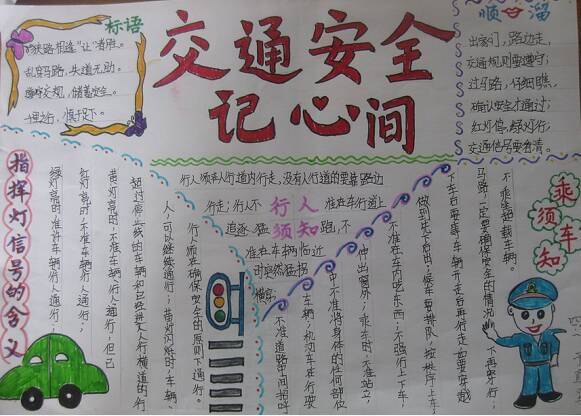 标语
狭路相逢"让"者胜。
乱穿马路，失道无助。
遵守交规，储蓄安全。
千里之行，慎于足下。
交通安全
记心间
顺口溜
出家门，路边走，
交通规则要遵守；
过马路，仔细瞧，
确认安全才通过；
红灯停，绿灯行，
交通信号要看清。
指挥灯信号的含义
绿灯亮时，准许车辆、行人通行；
红灯亮时，不准车辆、行人通行；
黄灯亮时，不准车辆、行人通行，但已
超过停止线的车辆和已经进入人行横道的行
人，可以继续通行；黄灯闪烁时，车辆、
行人须在确保安全的原则下通行。
行人须知
行人须在人行道内行走，没有人行道的要靠路边
行走；行人不准在车行道上
追逐猛跑，不
准在车辆临近
时突然猛拐
横穿
不准道路中间招呼
车辆，机动车在行驶
中不准将身体的任何部位
伸出窗外；乘车时，不准站立，
不准在车内吃东西；不强行上下车，
做到先下后上，候车要排队，按秩序上车；
下车后要等车辆开走后再行走，如要穿越
马路，一定要确保安全的情况下再穿行；
不乘坐超载车辆。
乘车须知